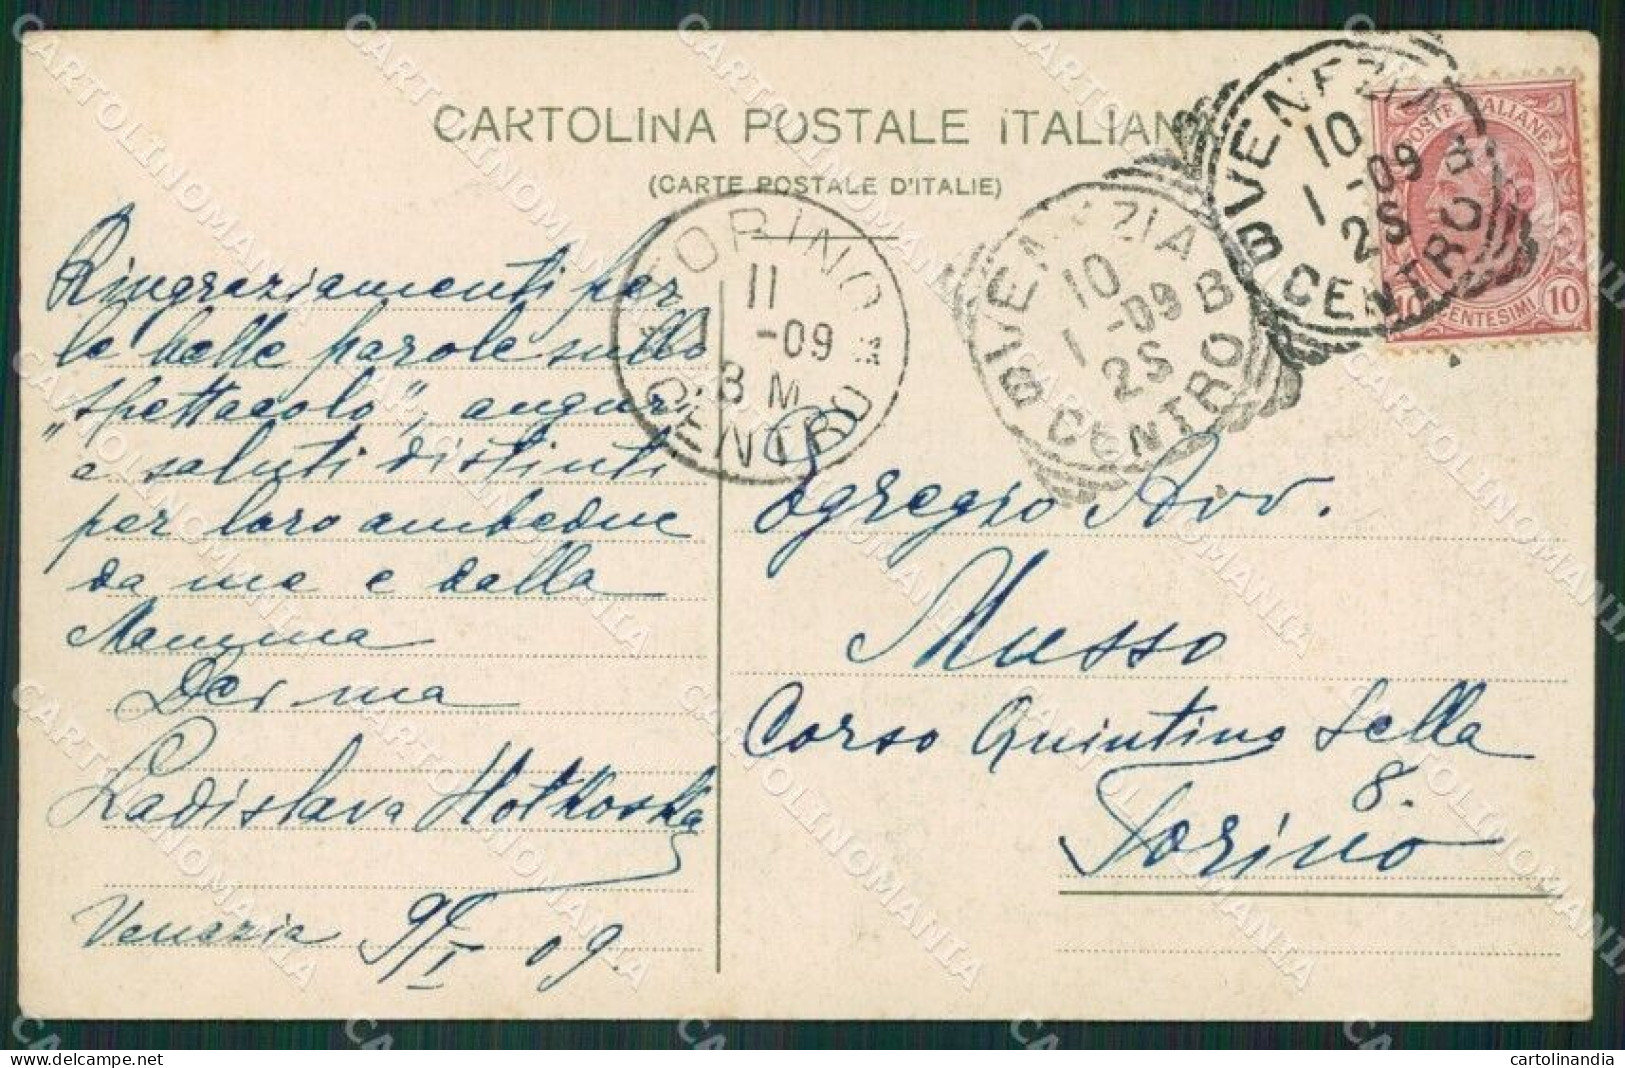 CARTOLINA POSTALE ITALIANA
(CARTE POSTALE D'ITALIE)
Ringraziamenti per
le belle parole sullo
„spettacolo", auguri
e saluti distinti
per loro ambedue
da me e dalla
Mamma
Ladislava Hotkowska
Venezia 9/I 09.
TORINO
11
1 -09
8 M
CENTRO
VENEZIA
10
1 -09
2S
CENTRO
VENEZIA
10
1 -09
2S
CENTRO
POSTE ITALIANE
10 CENTESIMI 10
Egregio Avv.
Musso
Corso Quintino Sella
8.
Torino
CARTOLINOMANIA
cartolinandia